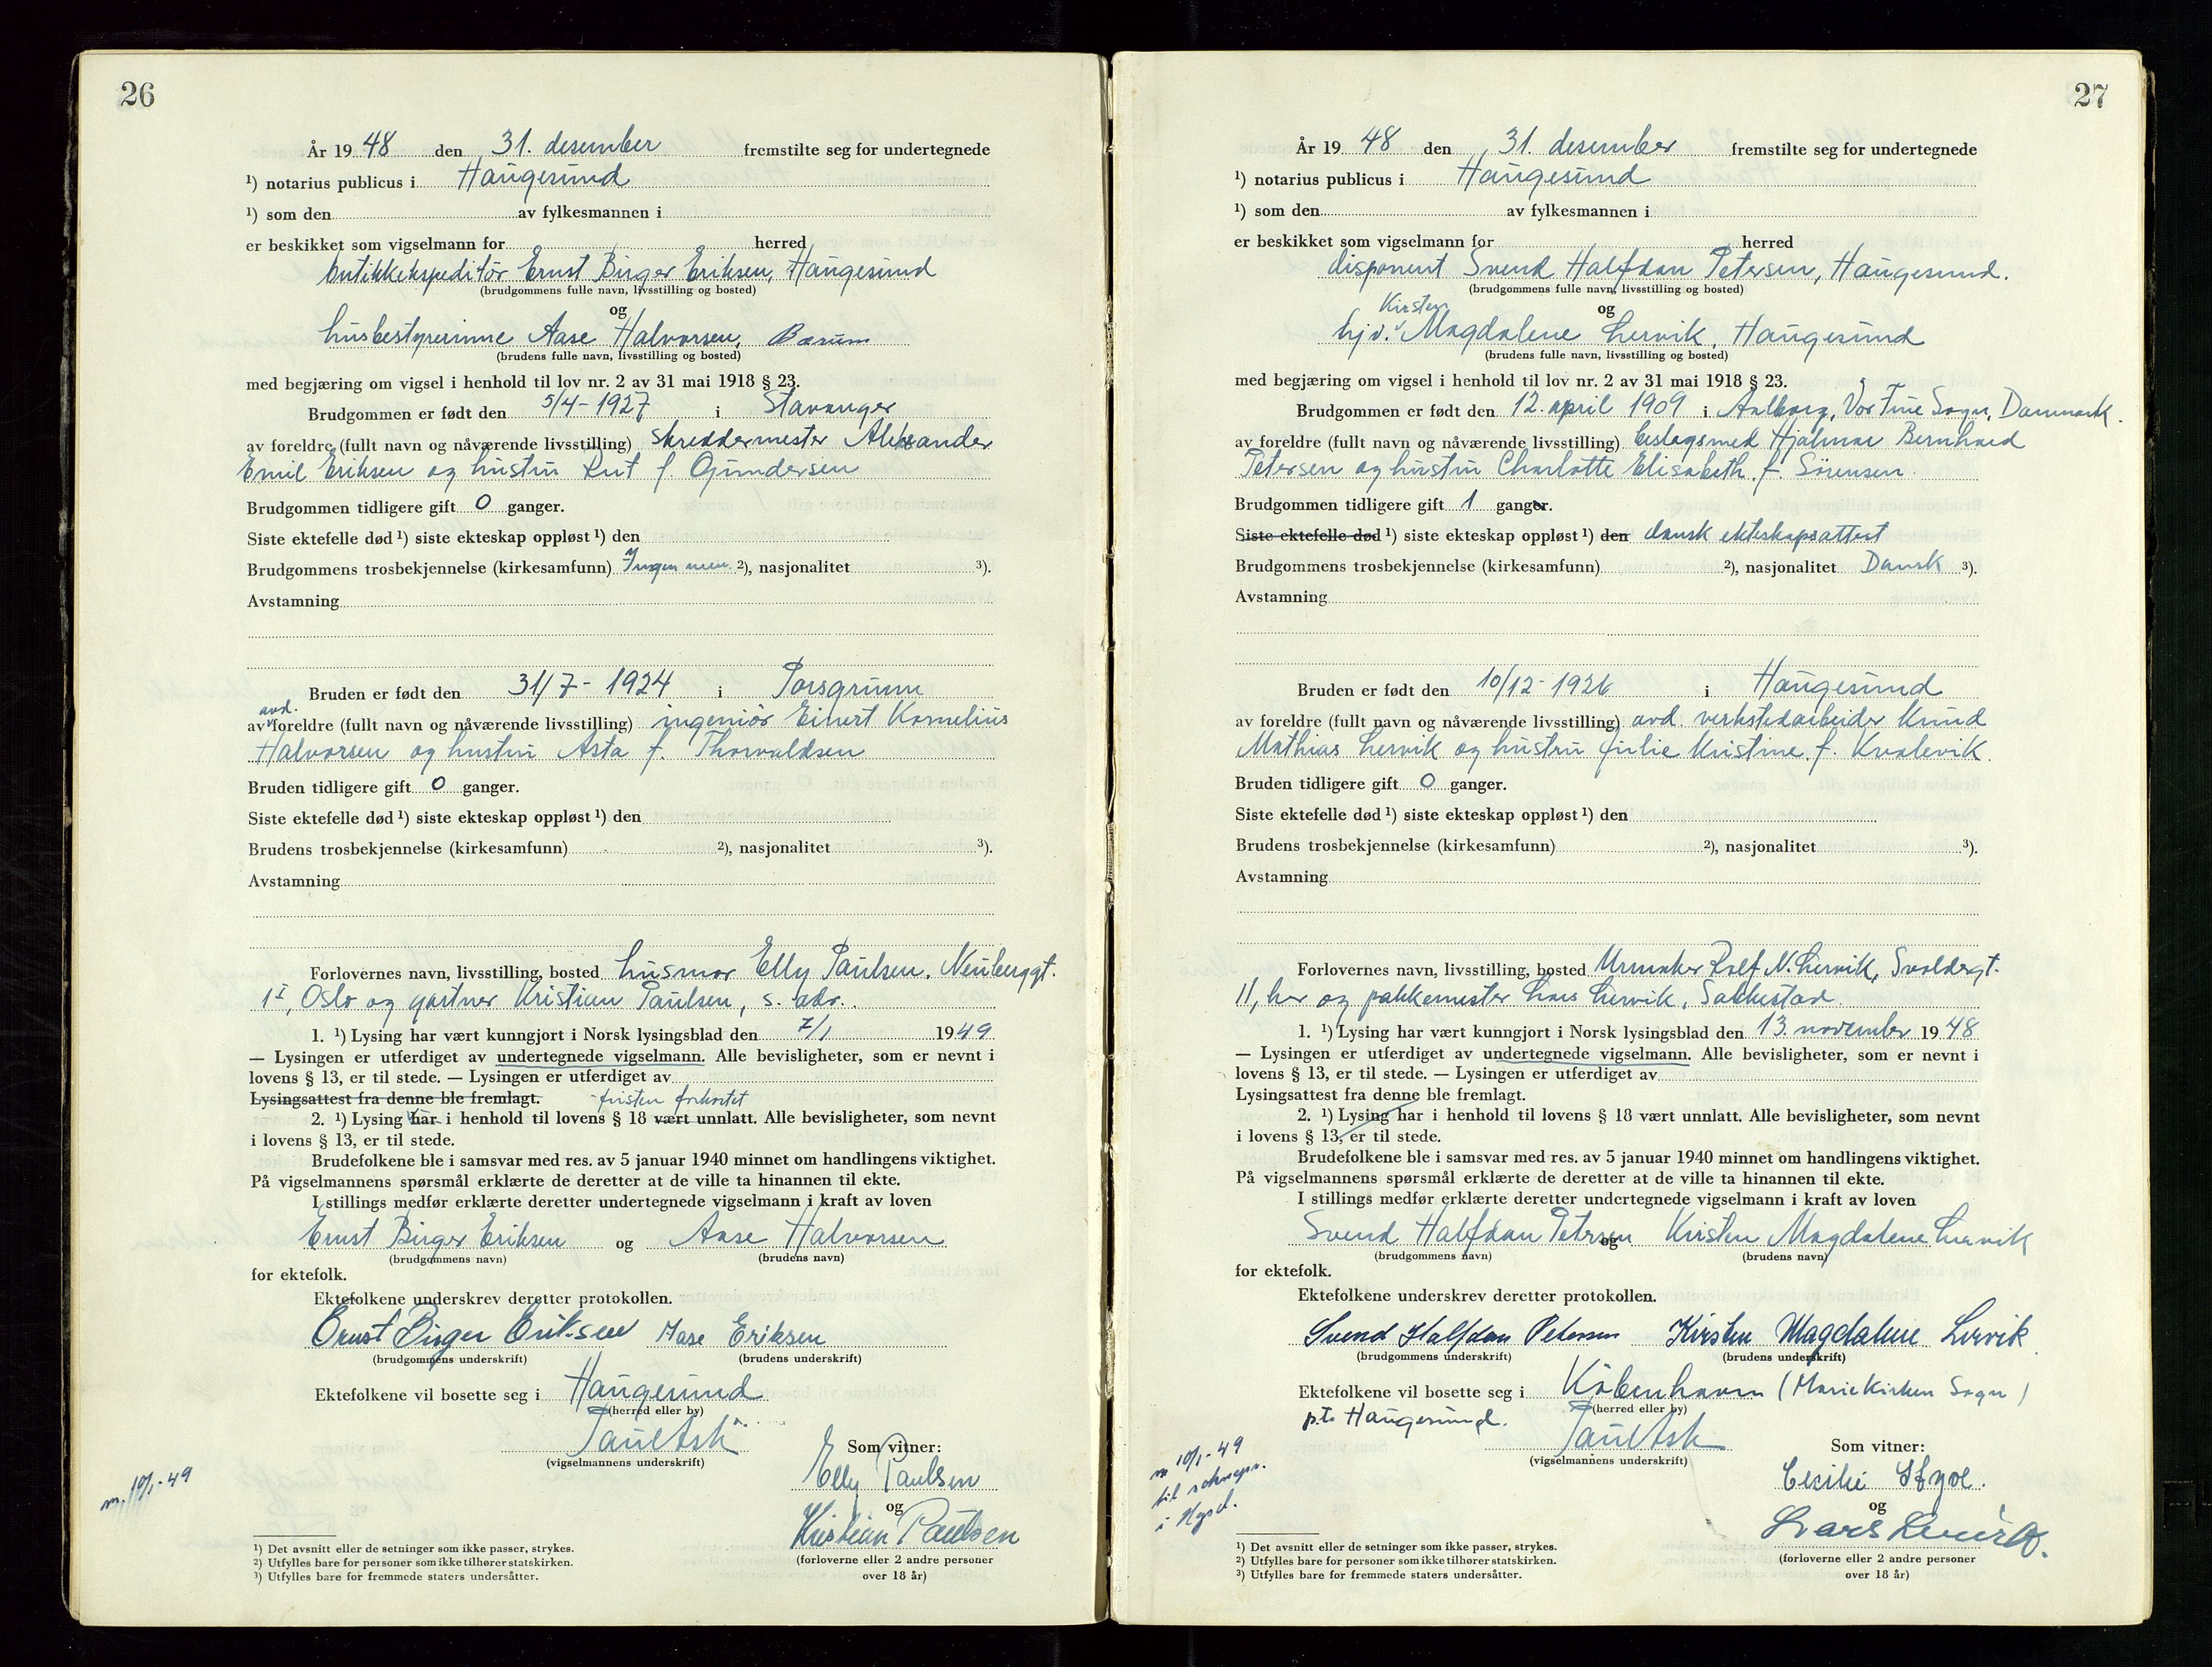 26
År 19 48 den 31. desember fremstilte seg for undertegnede
¹) notarius publicus i Haugesund
¹) som den av fylkesmannen i
er beskikket som vigselmann for herred
butikkekspeditør Ernst Birger Eriksen, Haugesund
(brudgommens fulle navn, livsstilling og bosted)
og
husbestyrerinne Aase Halvorsen, Bærum
(brudens fulle navn, livsstilling og bosted)
med begjæring om vigsel i henhold til lov nr. 2 av 31 mai 1918 § 23.
Brudgommen er født den 5/4-1927 i Stavanger
av foreldre (fullt navn og nåværende livsstilling) skreddermester Aleksander
Emil Eriksen og hustru Rut f. Gundersen
Brudgommen tidligere gift 0 ganger.
Siste ektefelle død ¹) siste ekteskap oppløst ¹) den
Brudgommens trosbekjennelse (kirkesamfunn) Ingen men. ²), nasjonalitet ³).
Avstamning
Bruden er født den 31/7-1924 i Porsgrunn
avd.
av foreldre (fullt navn og nåværende livsstilling) ingeniør Einert Kornelius
Halvorsen og hustru Asta f. Thorvaldsen
Bruden tidligere gift 0 ganger.
Siste ektefelle død ¹) siste ekteskap oppløst ¹) den
Brudens trosbekjennelse (kirkesamfunn) ²), nasjonalitet ³).
Avstamning
Forlovernes navn, livsstilling, bosted husmor Elly Paulsen, Neuberggt.
1 I, Oslo og gartner Kristian Paulsen, s. adr.
1. ¹) Lysing har vært kunngjort i Norsk lysingsblad den 7/1 1949
— Lysingen er utferdiget av undertegnede vigselmann. Alle bevisligheter, som er nevnt i
lovens § 13, er til stede. — Lysingen er utferdiget av
Lysingsattest fra denne ble fremlagt. fristen forkortet
2. ¹) Lysing har i henhold til lovens § 18 vært unnlatt. Alle bevisligheter, som nevnt
i lovens § 13, er til stede.
Brudefolkene ble i samsvar med res. av 5 januar 1940 minnet om handlingens viktighet.
På vigselmannens spørsmål erklærte de deretter at de ville ta hinannen til ekte.
I stillings medfør erklærte deretter undertegnede vigselmann i kraft av loven
Ernst Birger Eriksen og Aase Halvorsen
(brudgommens navn) (brudens navn)
for ektefolk.
Ektefolkene underskrev deretter protokollen.
Ernst Birger Eriksen Aase Eriksen
(brudgommens underskrift) (brudens underskrift)
Ektefolkene vil bosette seg i Haugesund
(herred eller by)
Paul Ask
(vigselmannens underskrift)
Som vitner:
Elly Paulsen
og
Kristian Paulsen
(forloverne eller 2 andre personer
over 18 år)
m. 10/1-49
¹) Det avsnitt eller de setninger som ikke passer, strykes.
²) Utfylles bare for personer som ikke tilhører statskirken.
³) Utfylles bare for fremmede staters undersåtter.
27
År 19 48 den 31. desember fremstilte seg for undertegnede
¹) notarius publicus i Haugesund
¹) som den av fylkesmannen i
er beskikket som vigselmann for herred
disponent Svend Halfdan Petersen, Haugesund.
(brudgommens fulle navn, livsstilling og bosted)
og
Kirsten
hjv. Magdalene Lervik, Haugesund
(brudens fulle navn, livsstilling og bosted)
med begjæring om vigsel i henhold til lov nr. 2 av 31 mai 1918 § 23.
Brudgommen er født den 12. april 1909 i Aalborg, Vor Frue Sogn, Danmark.
av foreldre (fullt navn og nåværende livsstilling) beslagsmed Hjalmar Bernhard
Petersen og hustru Charlotte Elisabeth f. Sørensen.
Brudgommen tidligere gift 1 ganger.
Siste ektefelle død ¹) siste ekteskap oppløst ¹) den dansk ekteskapsattest
Brudgommens trosbekjennelse (kirkesamfunn) ²), nasjonalitet Dansk ³).
Avstamning
Bruden er født den 10/12-1926 i Haugesund
av foreldre (fullt navn og nåværende livsstilling) avd. verkstedarbeider Knud
Mathias Lervik og hustru Julie Kristine f. Kvalevik.
Bruden tidligere gift 0 ganger.
Siste ektefelle død ¹) siste ekteskap oppløst ¹) den
Brudens trosbekjennelse (kirkesamfunn) ²), nasjonalitet ³).
Avstamning
Forlovernes navn, livsstilling, bosted Urmaker Rolf N. Lervik, Svoldergt.
11, her og pakkemester Lars Lervik, Sakkestad.
1. ¹) Lysing har vært kunngjort i Norsk lysingsblad den 13. november 19 48
— Lysingen er utferdiget av undertegnede vigselmann. Alle bevisligheter, som er nevnt i
lovens § 13, er til stede. — Lysingen er utferdiget av
Lysingsattest fra denne ble fremlagt.
2. ¹) Lysing har i henhold til lovens § 18 vært unnlatt. Alle bevisligheter, som nevnt
i lovens § 13, er til stede.
Brudefolkene ble i samsvar med res. av 5 januar 1940 minnet om handlingens viktighet.
På vigselmannens spørsmål erklærte de deretter at de ville ta hinannen til ekte.
I stillings medfør erklærte deretter undertegnede vigselmann i kraft av loven
Svend Halfdan Petersen og Kirsten Magdalene Lervik
(brudgommens navn) (brudens navn)
for ektefolk.
Ektefolkene underskrev deretter protokollen.
Svend Halfdan Petersen Kirsten Magdalene Lervik
(brudgommens underskrift) (brudens underskrift)
Ektefolkene vil bosette seg i København (Mariekirken Sogn)
(herred eller by)
p.t. Haugesund.
Paul Ask
(vigselmannens underskrift)
Som vitner:
Cecilie
og
Lars Lervik.
(forloverne eller 2 andre personer
over 18 år)
m 10/1-49
til soknepr.
i Hgsd.
¹) Det avsnitt eller de setninger som ikke passer, strykes.
²) Utfylles bare for personer som ikke tilhører statskirken.
³) Utfylles bare for fremmede staters undersåtter.